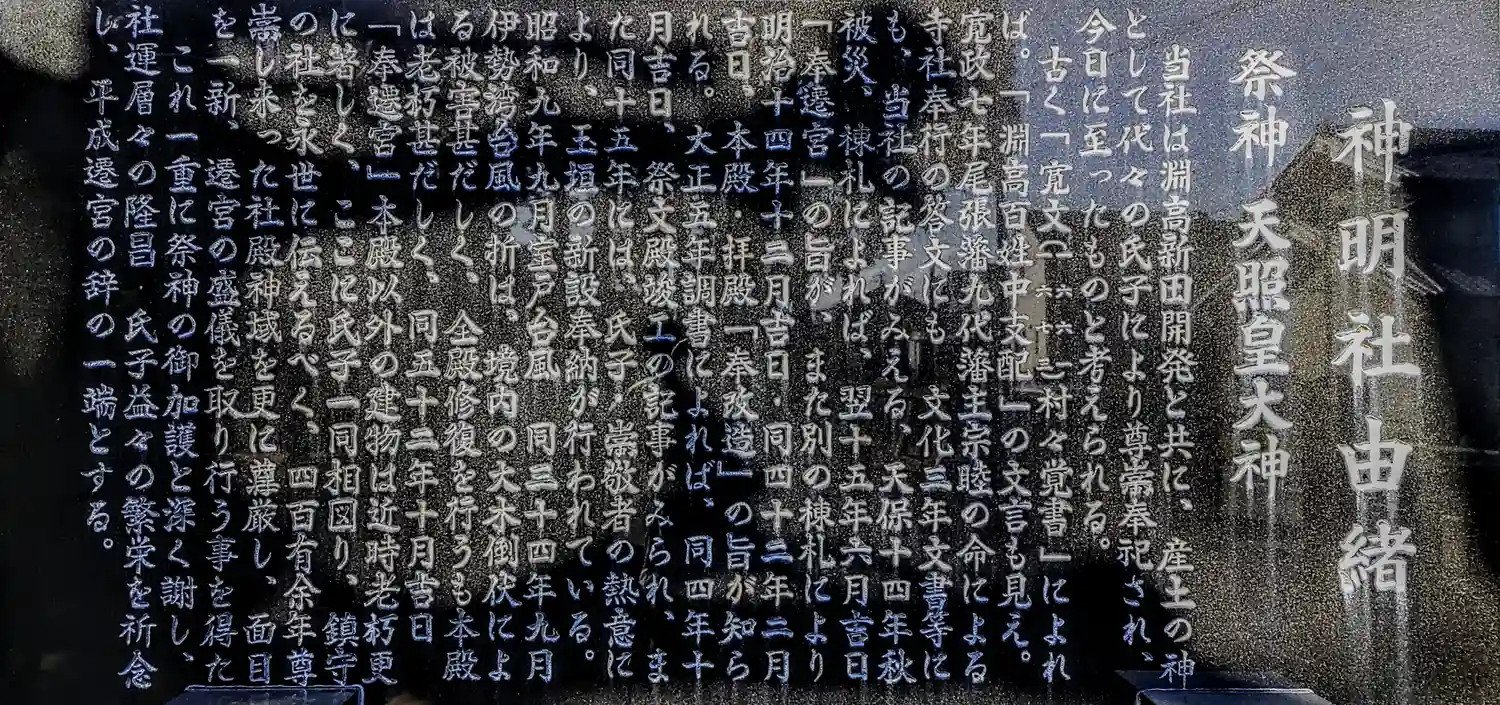 神明社由緒
祭神 天照皇大神
当社は淵高新田開発と共に、産土の神
として代々の氏子により尊崇奉祀され、
今日に至ったものと考えられる。
古く「寛文(一六七六二)村々覚書」によれ
ば。「淵高百姓中支配」の文言も見え。
寛政七年尾張藩九代藩主宗睦の命による
寺社奉行の答文にも 文化三年文書等に
も、当社の記事がみえる、天保十四年秋
被災、棟札によれば、翌十五年六月吉日
「奉遷宮」の旨が、また別の棟札により
明治十四年十二月吉日・同四十三年二月
吉日、本殿・拝殿「奉改造」の旨が知ら
れる。大正五年調書によれば、同四年十
月吉日、祭文殿竣工の記事がみられ、ま
た同十五年には、氏子・崇敬者の熱意に
より、玉垣の新設奉納が行われている。
昭和九年九月室戸台風 同三十四年九月
伊勢湾台風の折は、境内の大木倒伏によ
る被害甚だしく、全殿修復を行うも本殿
は老朽甚だしく、同五十二年十月吉日
「奉遷宮」本殿以外の建物は近時老朽更
に著しく、ここに氏子一同相図り、鎮守
の社を永世に伝えるべく、四百有余年尊
崇し来った社殿神域を更に尊厳し、面目
を一新、遷宮の盛儀を取り行う事を得た
これ一重に祭神の御加護と深く謝し、
社運層々の隆昌 氏子益々の繁栄を祈念
し、平成遷宮の辞の一端とする。